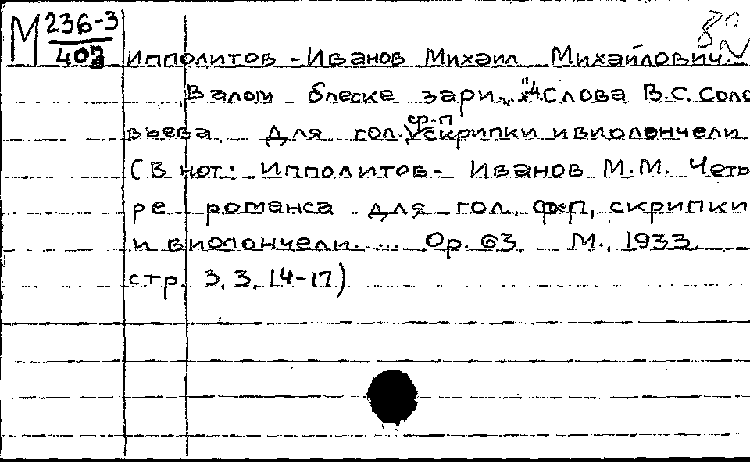 М 236-3
402
82
Ипполитов-Иванов Михаил Михайлович.
В алом блеске зари... Слова В.С. Соло
вьева. Для гол., ф-п скрипки и виолончели
(В нот: Ипполитов-Иванов М.М. Четы
ре романса для гол. ф-п, скрипки
и виолончели.... Ор. 63 М., 1933
стр. 3, 3, (4-17)